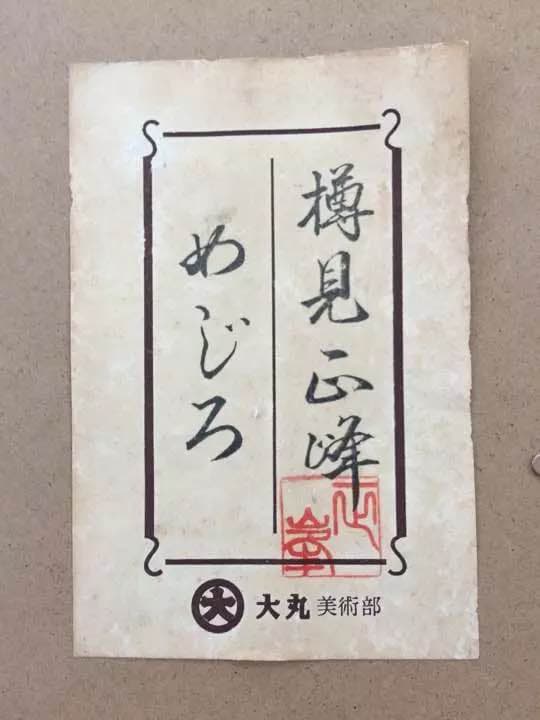 樽見正峰
めじろ
正峯
大 大丸 美術部